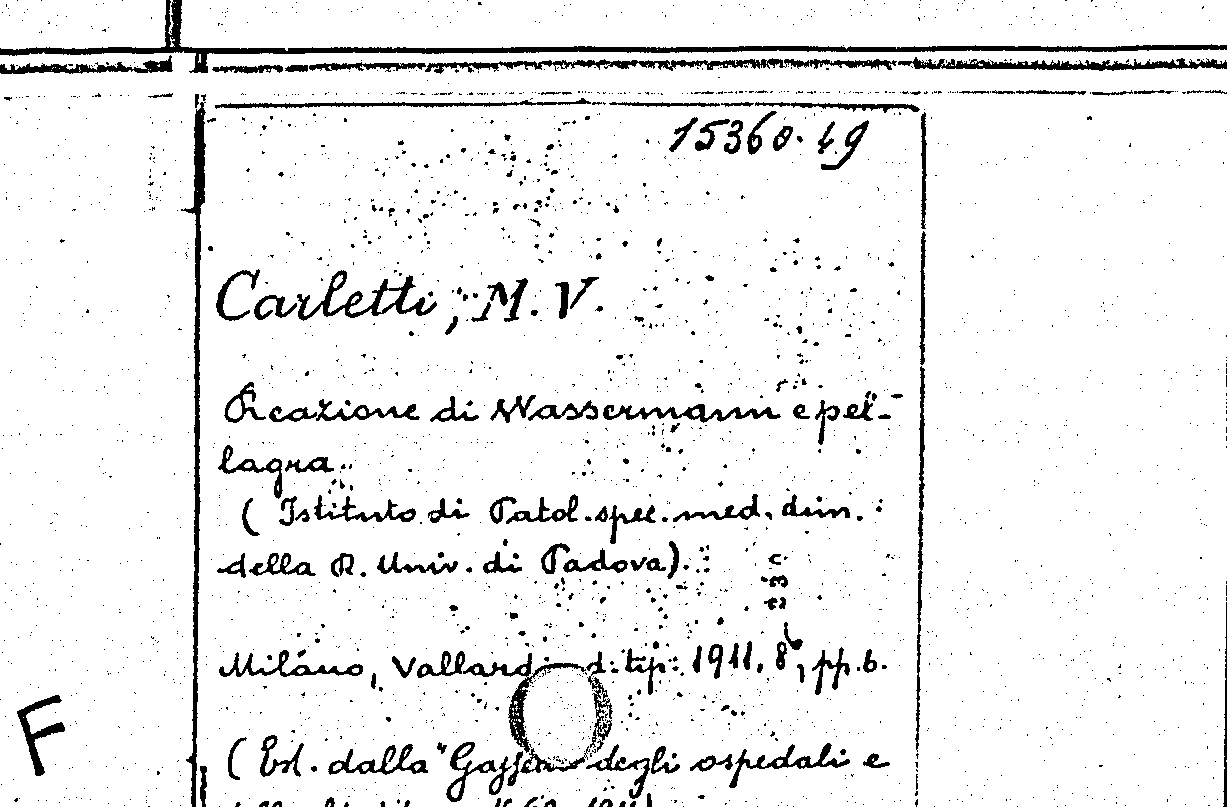 15360.49
Carletti, M. V.
Reazione di Wassermann e pel-
lagra.
( Istituto di Patol. spec. med. dim.
della R. Univ. di Padova).
Milano, Vallardi d. tip. 1911. 8°, pp. 6.
F
( Est. dalla "Gazzetta degli ospedali e